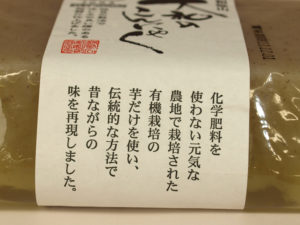 化学肥料を
使わない元気な
農地で栽培された
有機栽培の
芋だけを使い、
伝統的な方法で
昔ながらの
味を再現しました。